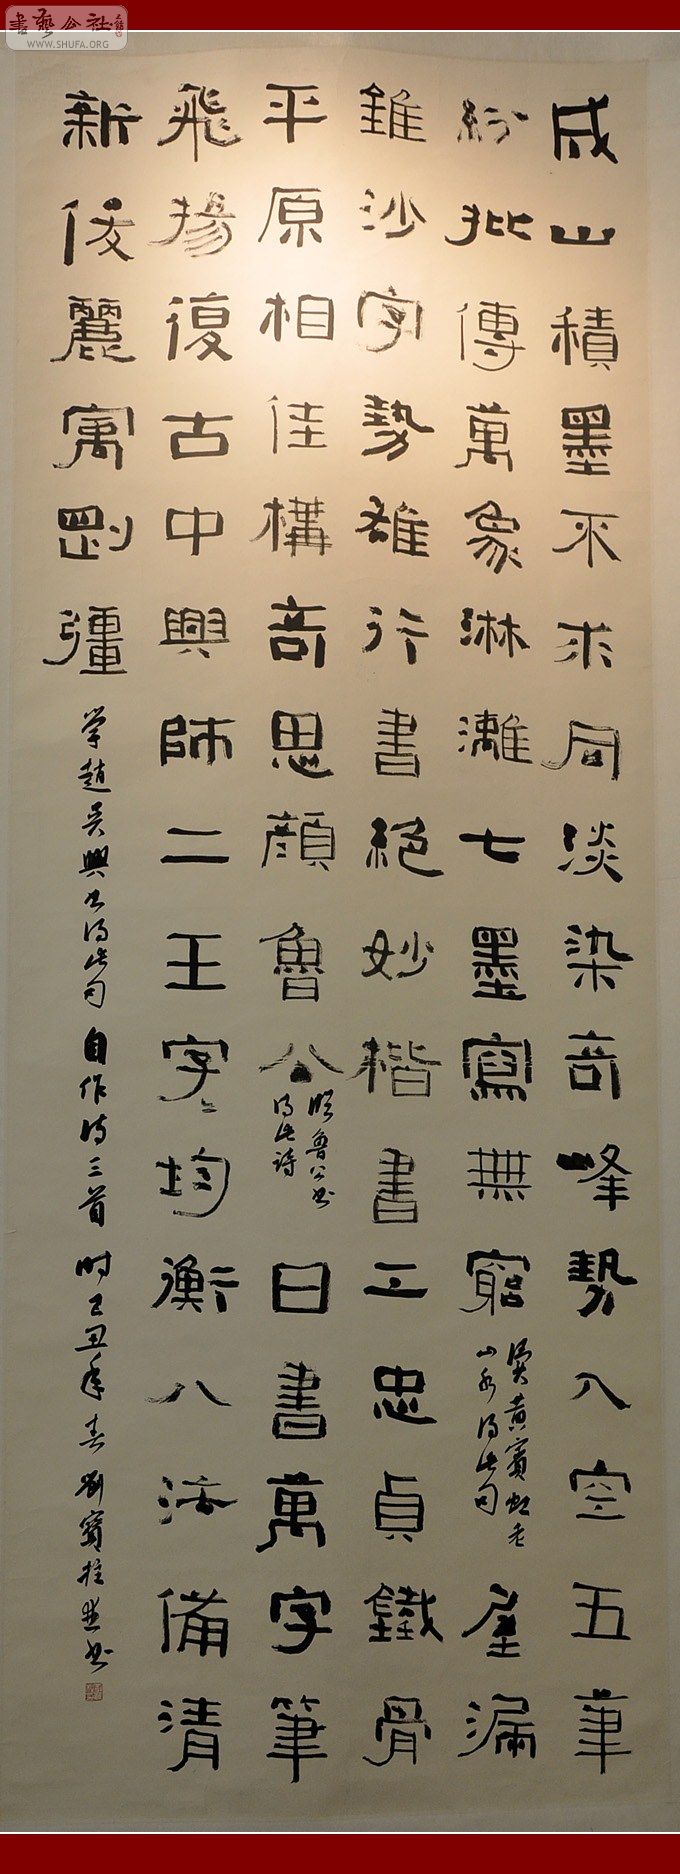 書藝公社
WWW.SHUFA.ORG
成山積墨不求同淡染奇峰勢入空五筆
紛批傳萬象淋漓七墨寫無窮
讀黃賓虹老
山水得此句
屋漏
錐沙字勢雄行書絕妙楷書工忠貞鐵骨
平原相佳構奇思顏魯公
臨魯公书
得此詩
日書萬字筆
飛揚復古中興師二王字〻均衡八法備清
新俊麗寓剛彊
学趙吳興书得此句 自作诗三首 时己丑年春 劉寶柱并书